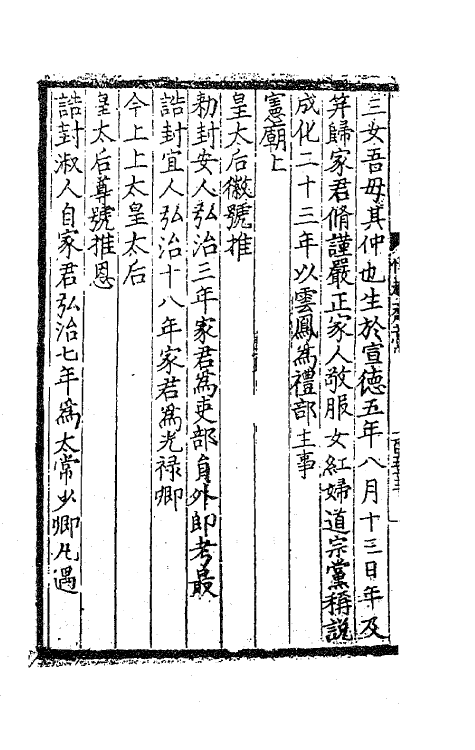 三女吾母其仲也生於宣德五年八月十三日年及
笄歸家君脩謹嚴正家人敬服女紅婦道宗黨稱說
成化二十三年以雲鳳為禮部主事
憲廟上
皇太后徽號推
勑封安人弘治三年家君為吏部員外郎考最
誥封宜人弘治十八年家君為光祿卿
今上上太皇太后
皇太后尊號推恩
誥封淑人自家君弘治七年為太常少卿凡遇